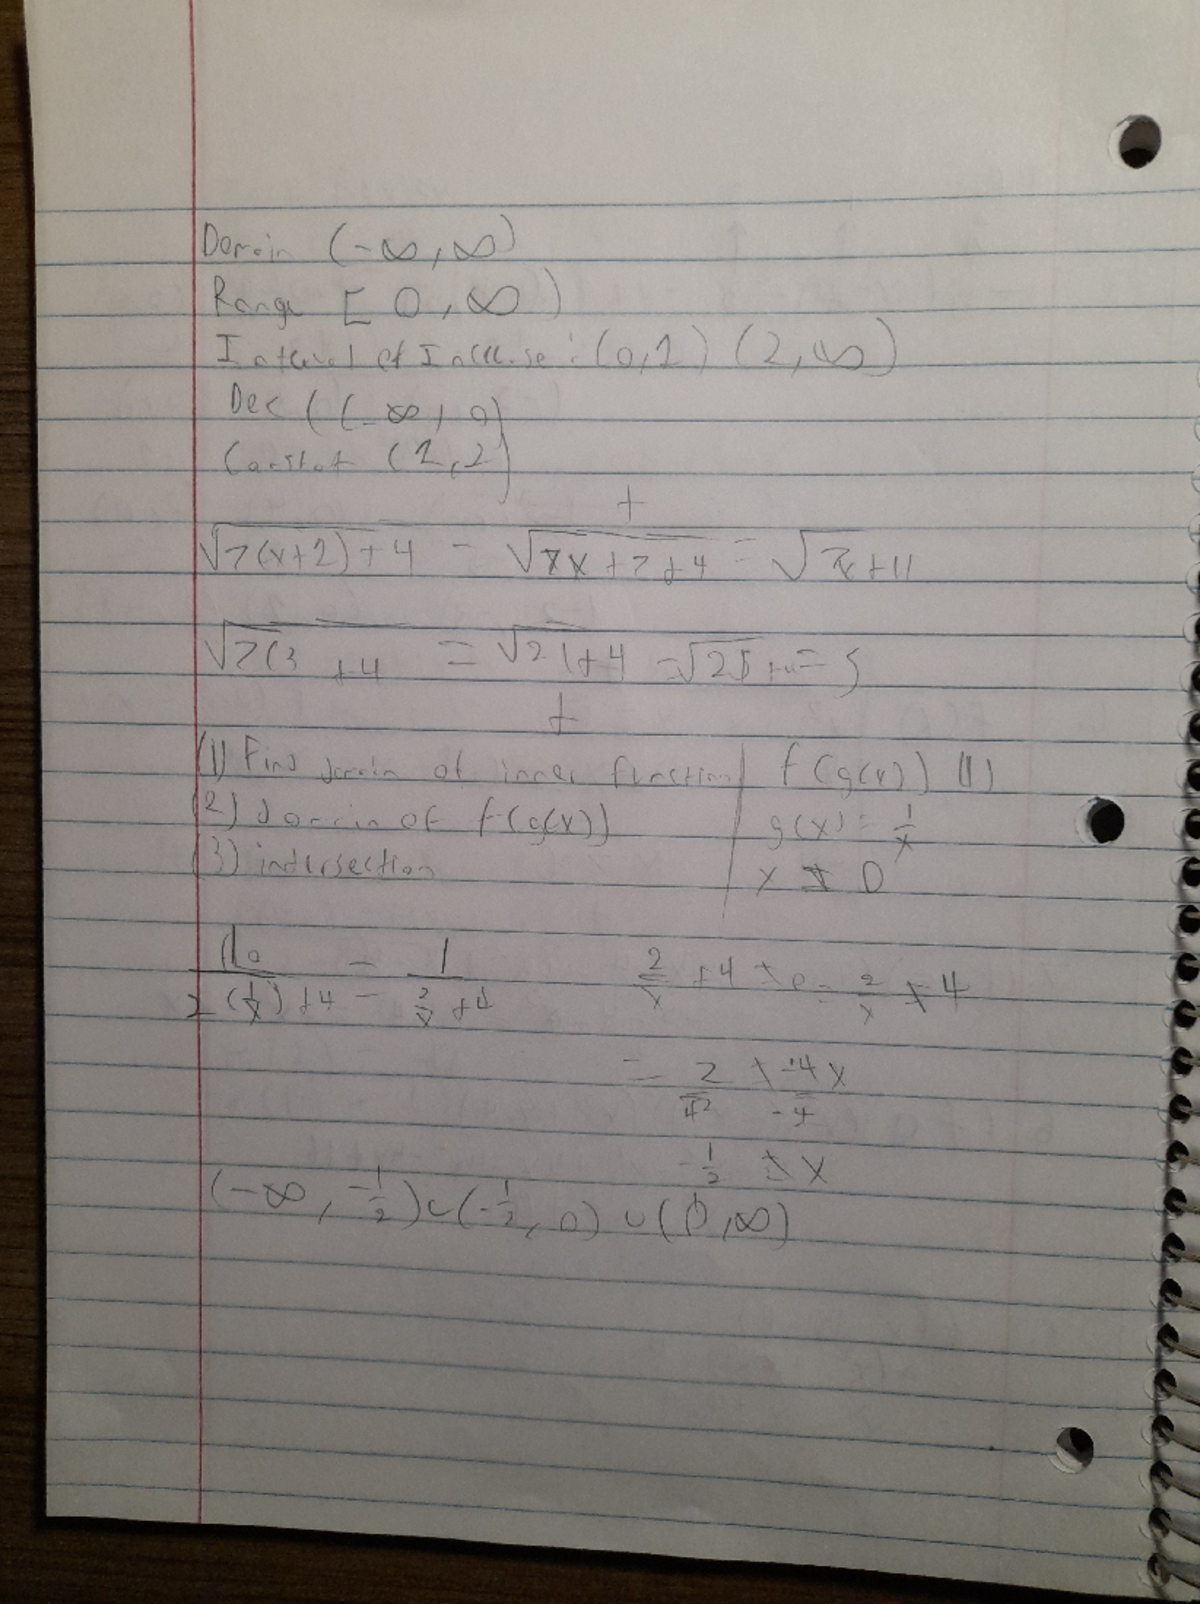 Domain (-∞, ∞)
Range [0, ∞)
Interval of Increase: (0,1) (2, ∞)
Dec ((-∞, 0)
Constat (1,2)
+
√7(x+2)+4 - √7x+7+4 = √7x+11
√7(3 +4 = √21+4 = √25 = 5
+
(1) Find domain of inner function f(g(x)) (1)
(2) domain of f(g(x)) g(x) = 1/x
(3) intersection x ≠ 0
2(1/x)+4 - 1/(2/x +4) 2/x +4 ≠ 0 = 2/x ≠ -4
= 2 ≠ -4x
-4
-1/2 ≠ x
(-∞, -1/2) ∪ (-1/2, 0) ∪ (0, ∞)